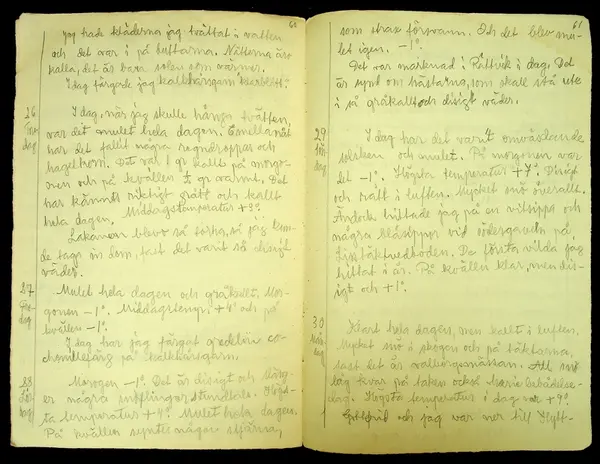 60
jag hade kläderna jag tvättat i vatten
och det var i på luftarna. Nätterna äro
kalla, det är bara solen som värmer.
I dag färgade jag kalkhargarn
26
Tors
dag
I dag, när jag skulle hänga tvätten,
var det mulet hela dagen. Emellanåt
har det fallit några regndroppar och
hagelkorn. Det var 1 gr kallt på morgo-
nen och på kvällen ± gr varmt. Det
har känts riktigt grått och kallt
hela dagen. Middagstemperatur +3°.
Lakanen blevo så torra, så jag kun-
de taga in dem, fast det varit så disigt
väder.
27
Fre
dag
Mulet hela dagen och gråkallt. Mor-
gonen -1°. Middagstemp. +4° och på
kvällen -1°.
I dag har jag färgat gredelin co-
chenillefärg på
28
Lör
dag
Morgon -1°. Det är disigt och
er några snöflingor, stundtals. Högs-
ta temperatur +4°. Mulet hela dagen.
På kvällen syntes några stjärnor,
61
som strax försvann. Och det blev mu-
let igen. -1°.
Det var marknad i Rättvik i dag. Det
är synd om hästarna, som skall stå ute
i så gråkallt och disigt väder.
29
Sön
dag
I dag har det varit omväxlande
solsken och mulet. På morgonen var
det -1°. Högsta temperatur +7°. Disigt
och rått i luften. Mycket snö överallt.
Ändock hittade jag på en vitsippa och
några blåsippor vid
De första vilda jag
hittat i år. På kvällen klar, men dis-
igt och +1°.
30
Mån
dag
Klart hela dagen, men kallt i luften.
Mycket snö i skogen och på täkterna,
fast det är valborgsmässan. All snö
låg kvar på taken också Marie bebådelse-
dag. Högsta temperatur i dag var +9°.
Gottfrid och jag var ner till Hytt-